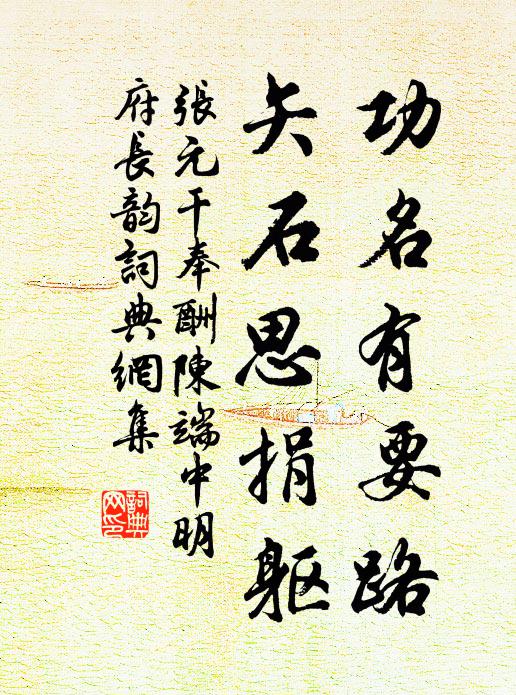 功名有要路
矢石思捐軀
張元干奉酬陳端中明
府長韵詞典網集
詞典
网印